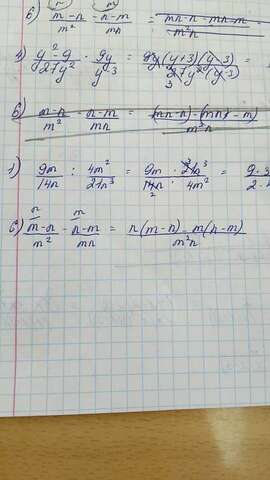 б) m-n/m² - n-m/mn = mn-n-mn-m/m²n
1) y²-9/27y² · 9y/y-3 = 9y(y+3)(y-3)/27y²(y-3) =
3
б) m-n/m² - n-m/mn = (mn-n)-(mn-m)/m³n
1) 9m/14n : 4m²/21n³ = 9m · 21n³/14n · 4m² = 9·3
3 2 2·
n m
б) m-n/m² - n-m/mn = n(m-n)-m(n-m)/m²n